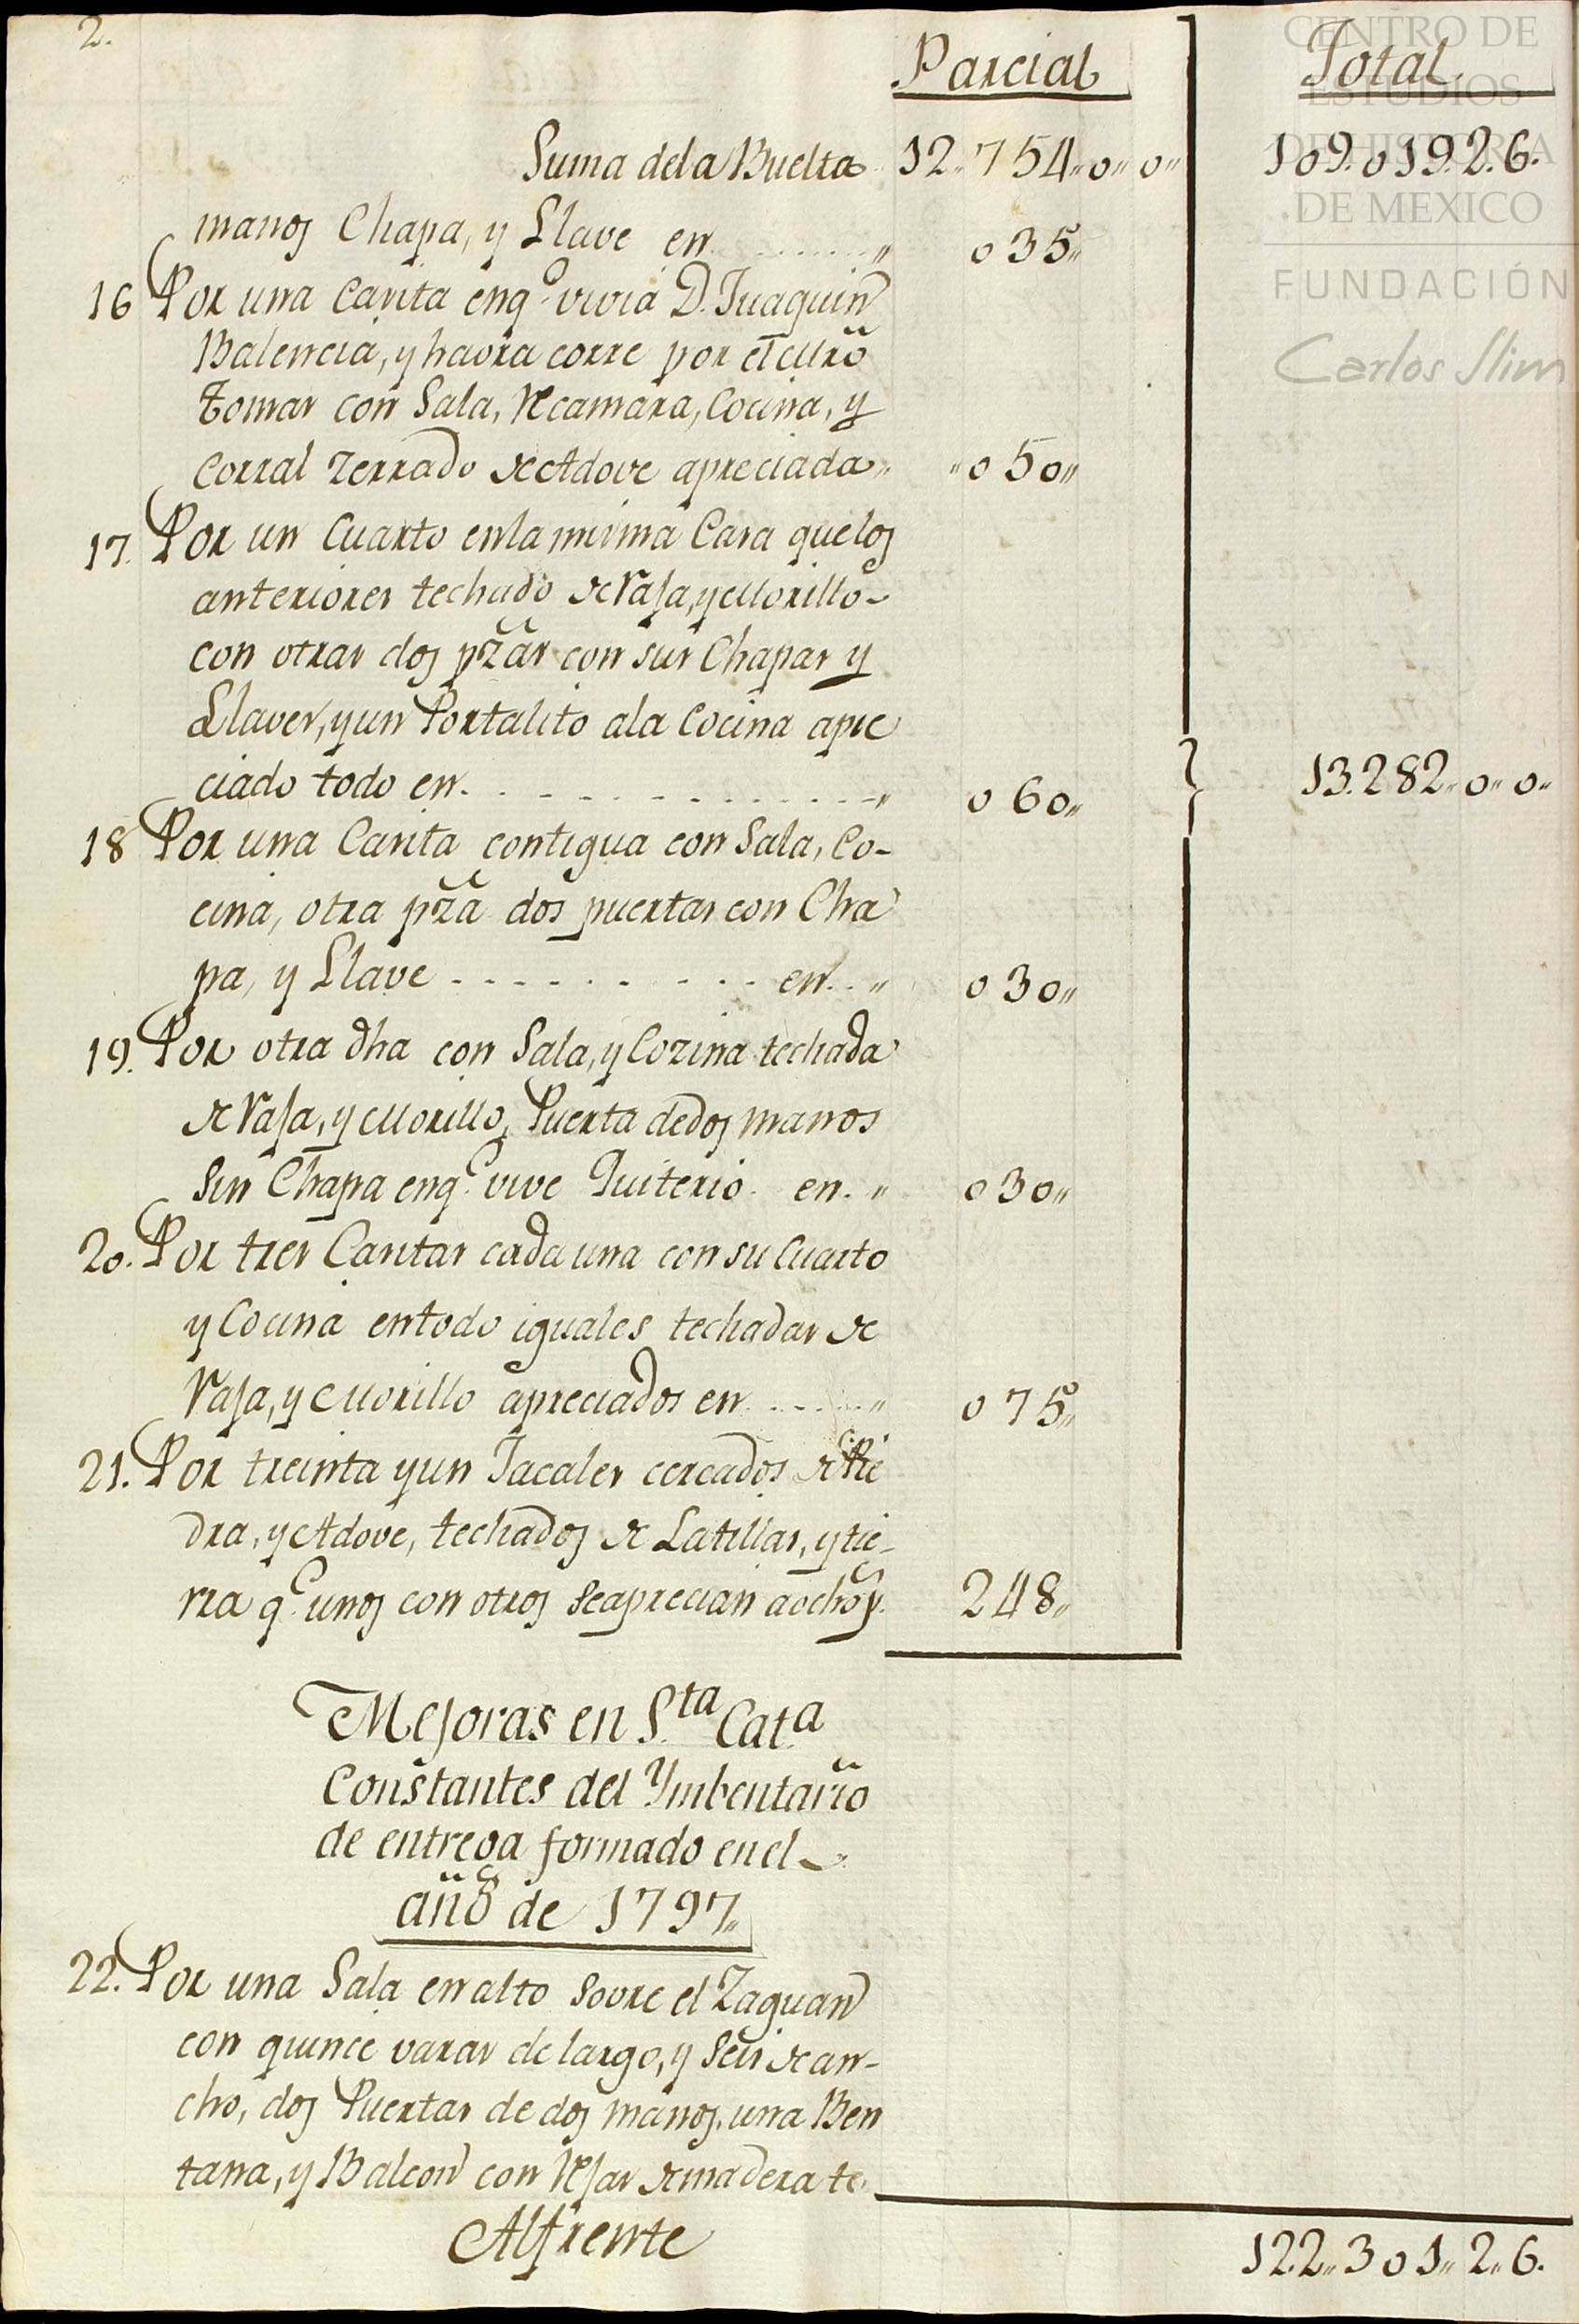 2.
Parcial
Total
CENTRO DE
ESTUDIOS
DE HISTORIA
DE MEXICO
FUNDACIÓN
Carlos Slim
Suma dela Buelta 12,,754,,0,,0,, 109.019.2.6.
manos Chapa, y Llave en. . . . . . . ,, 035,,
16 Por una Casita enq.e vivia D. Juaquin
Balencia, y haora corre por el Mrõ
Tomas con Sala, Recamara, Cocina, y
Corral zerrado de Adove apreciada,, ,,050,,
17. Por un Cuarto enla misma Casa quelos
anteriores techado de Vasa, y Morillo-
con otras dos pz̃as con sus Chapas y
Llaves, y un Portalito ala Cocina apre
ciado todo en. . - - - - - - - - - ,, 060,, } 13.282,,0,,0,,
18 Por una Casita contigua con Sala, Co-
cina, otra pz̃a dos puertas con Cha
pa, y Llave - - - - - - - - - - en. . ,, 030,,
19. Por otra dha con Sala, y Cozina techada
de Vasa, y Morillo, Puerta dedos manos
Sin Chapa enq.e vive Quiterio. en. ,, 030,,
20. Por tres Casitas cada una con su Cuarto
y Cocina entodo iguales techadas de
Vasa, y Morillo apreciados en . . . . . ,, 075,,
21. Por treinta y un Jacales cercados de Pie
dra, y Adove, techados de Latillas, y tie-
rra q.e unos con otros se aprecian a ocho p.s 248,,
Mejoras en S.ta Cat.a
Constantes del Ymbentario
de entrega formado en el
año de 1797,,
22. Por una Sala en alto Sovre el Zaguan
con quince varas de largo, y Seis de an-
cho, dos Puertas de dos manos, una Ben
tana, y Balcon con Rejas de madera te-
Alfrente 122,,301,,2,,6.